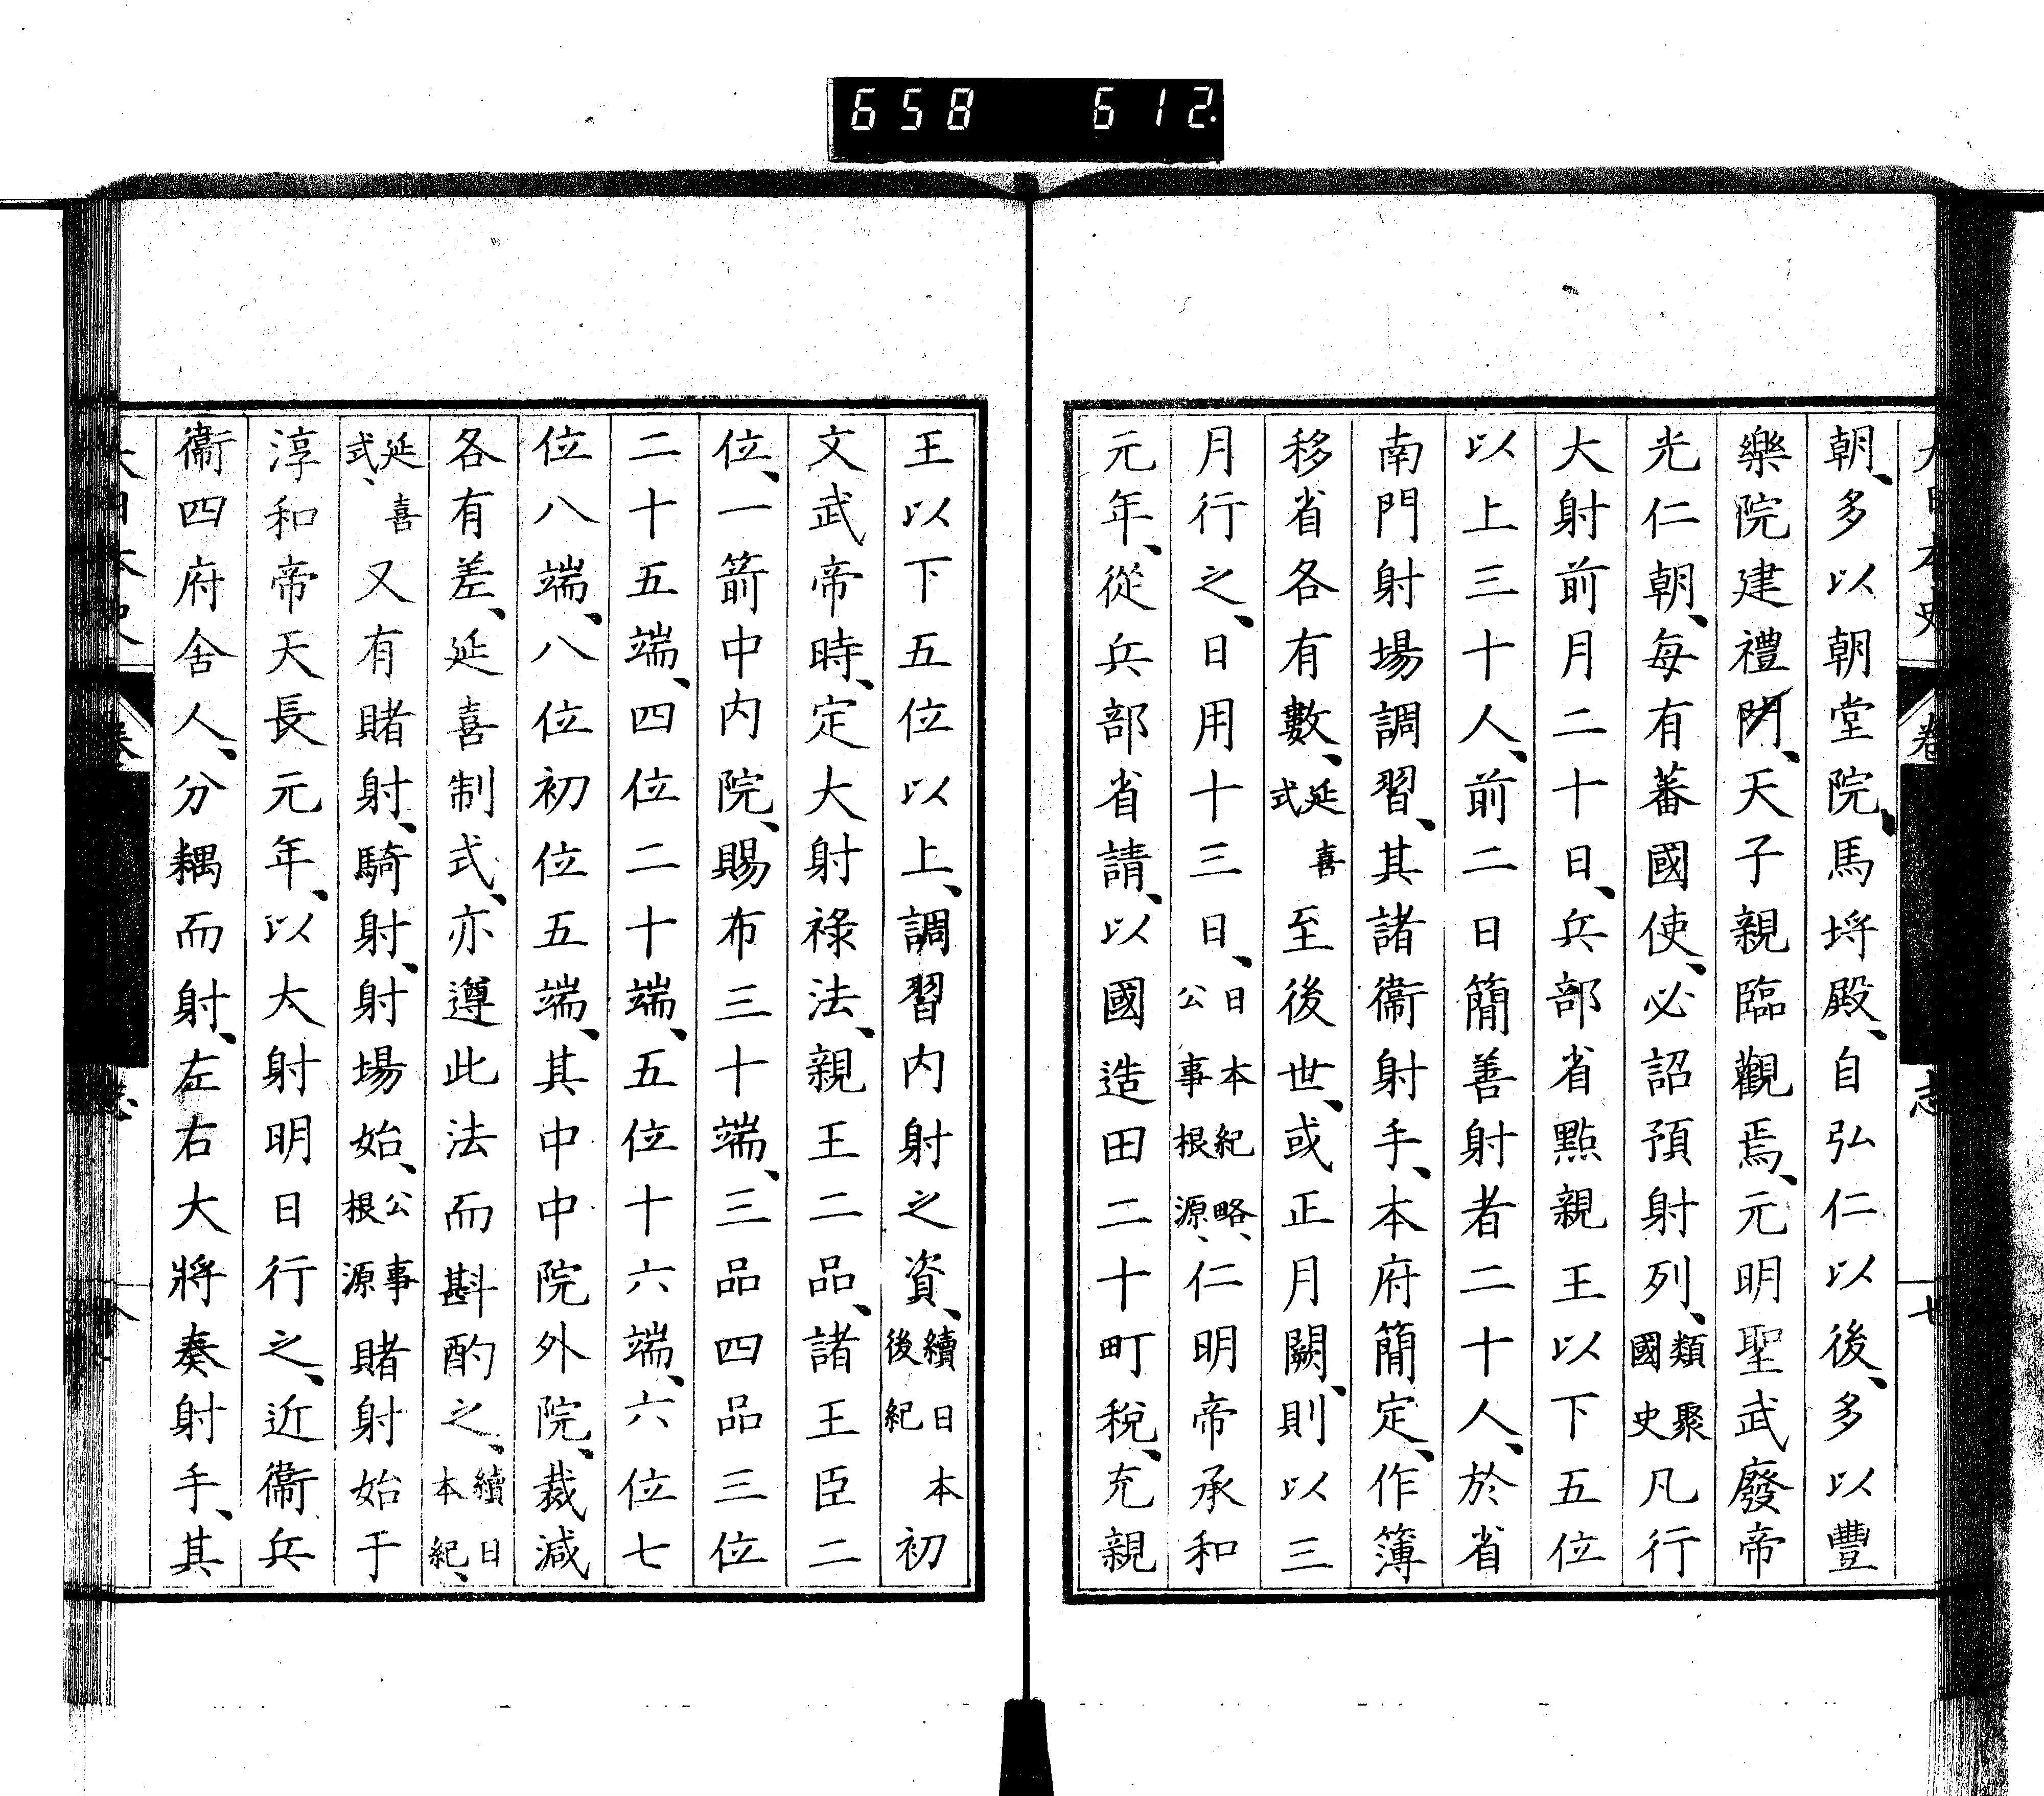 658 612
大日本史 卷 志 七
朝、多以朝堂院、馬埒殿、自弘仁以後、多以豐
樂院建禮門、天子親臨觀焉、元明聖武廢帝
光仁朝、每有蕃國使、必詔預射列、類聚國史凡行
大射前月二十日、兵部省點親王以下五位
以上三十人、前二日簡善射者二十人、於省
南門射場調習、其諸衞射手、本府簡定、作簿
移省各有數、延喜式至後世、或正月闕、則以三
月行之、日用十三日、日本紀略、公事根源、仁明帝承和
元年、從兵部省請、以國造田二十町稅、充親
王以下五位以上、調習内射之資、續日本後紀初
文武帝時、定大射祿法、親王二品、諸王臣二
位、一箭中内院、賜布三十端、三品四品三位
二十五端、四位二十端、五位十六端、六位七
位八端、八位初位五端、其中中院外院、裁減
各有差、延喜制式、亦遵此法而斟酌之、續日本紀、
延喜式、又有賭射、騎射、射場始、公事根源賭射始于
淳和帝天長元年、以大射明日行之、近衞兵
衞四府舍人、分耦而射、左右大將奏射手、其